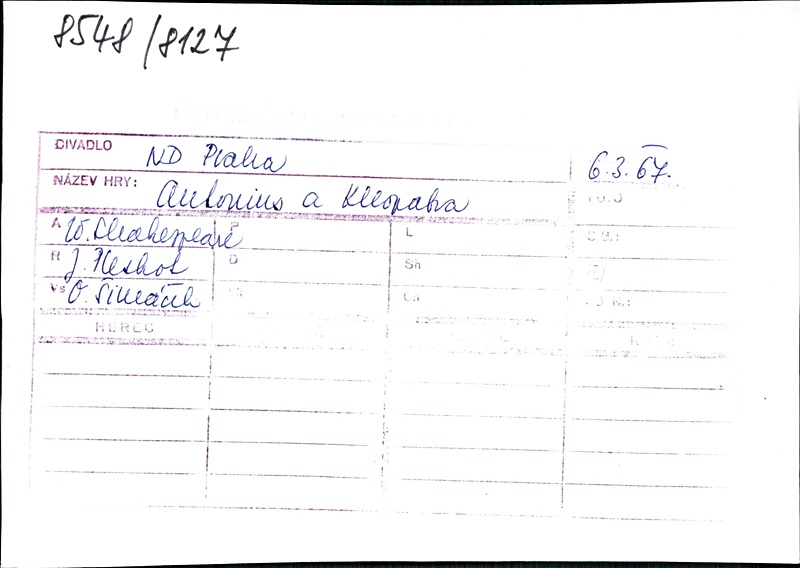 8548/8127
DIVADLO ND Praha 6.3.67.
NÁZEV HRY: Antonius a Kleopatra
A W. Shakespeare P L
R J. Pleskot D Sh
Vs O. Šimáček Ch
HEREC